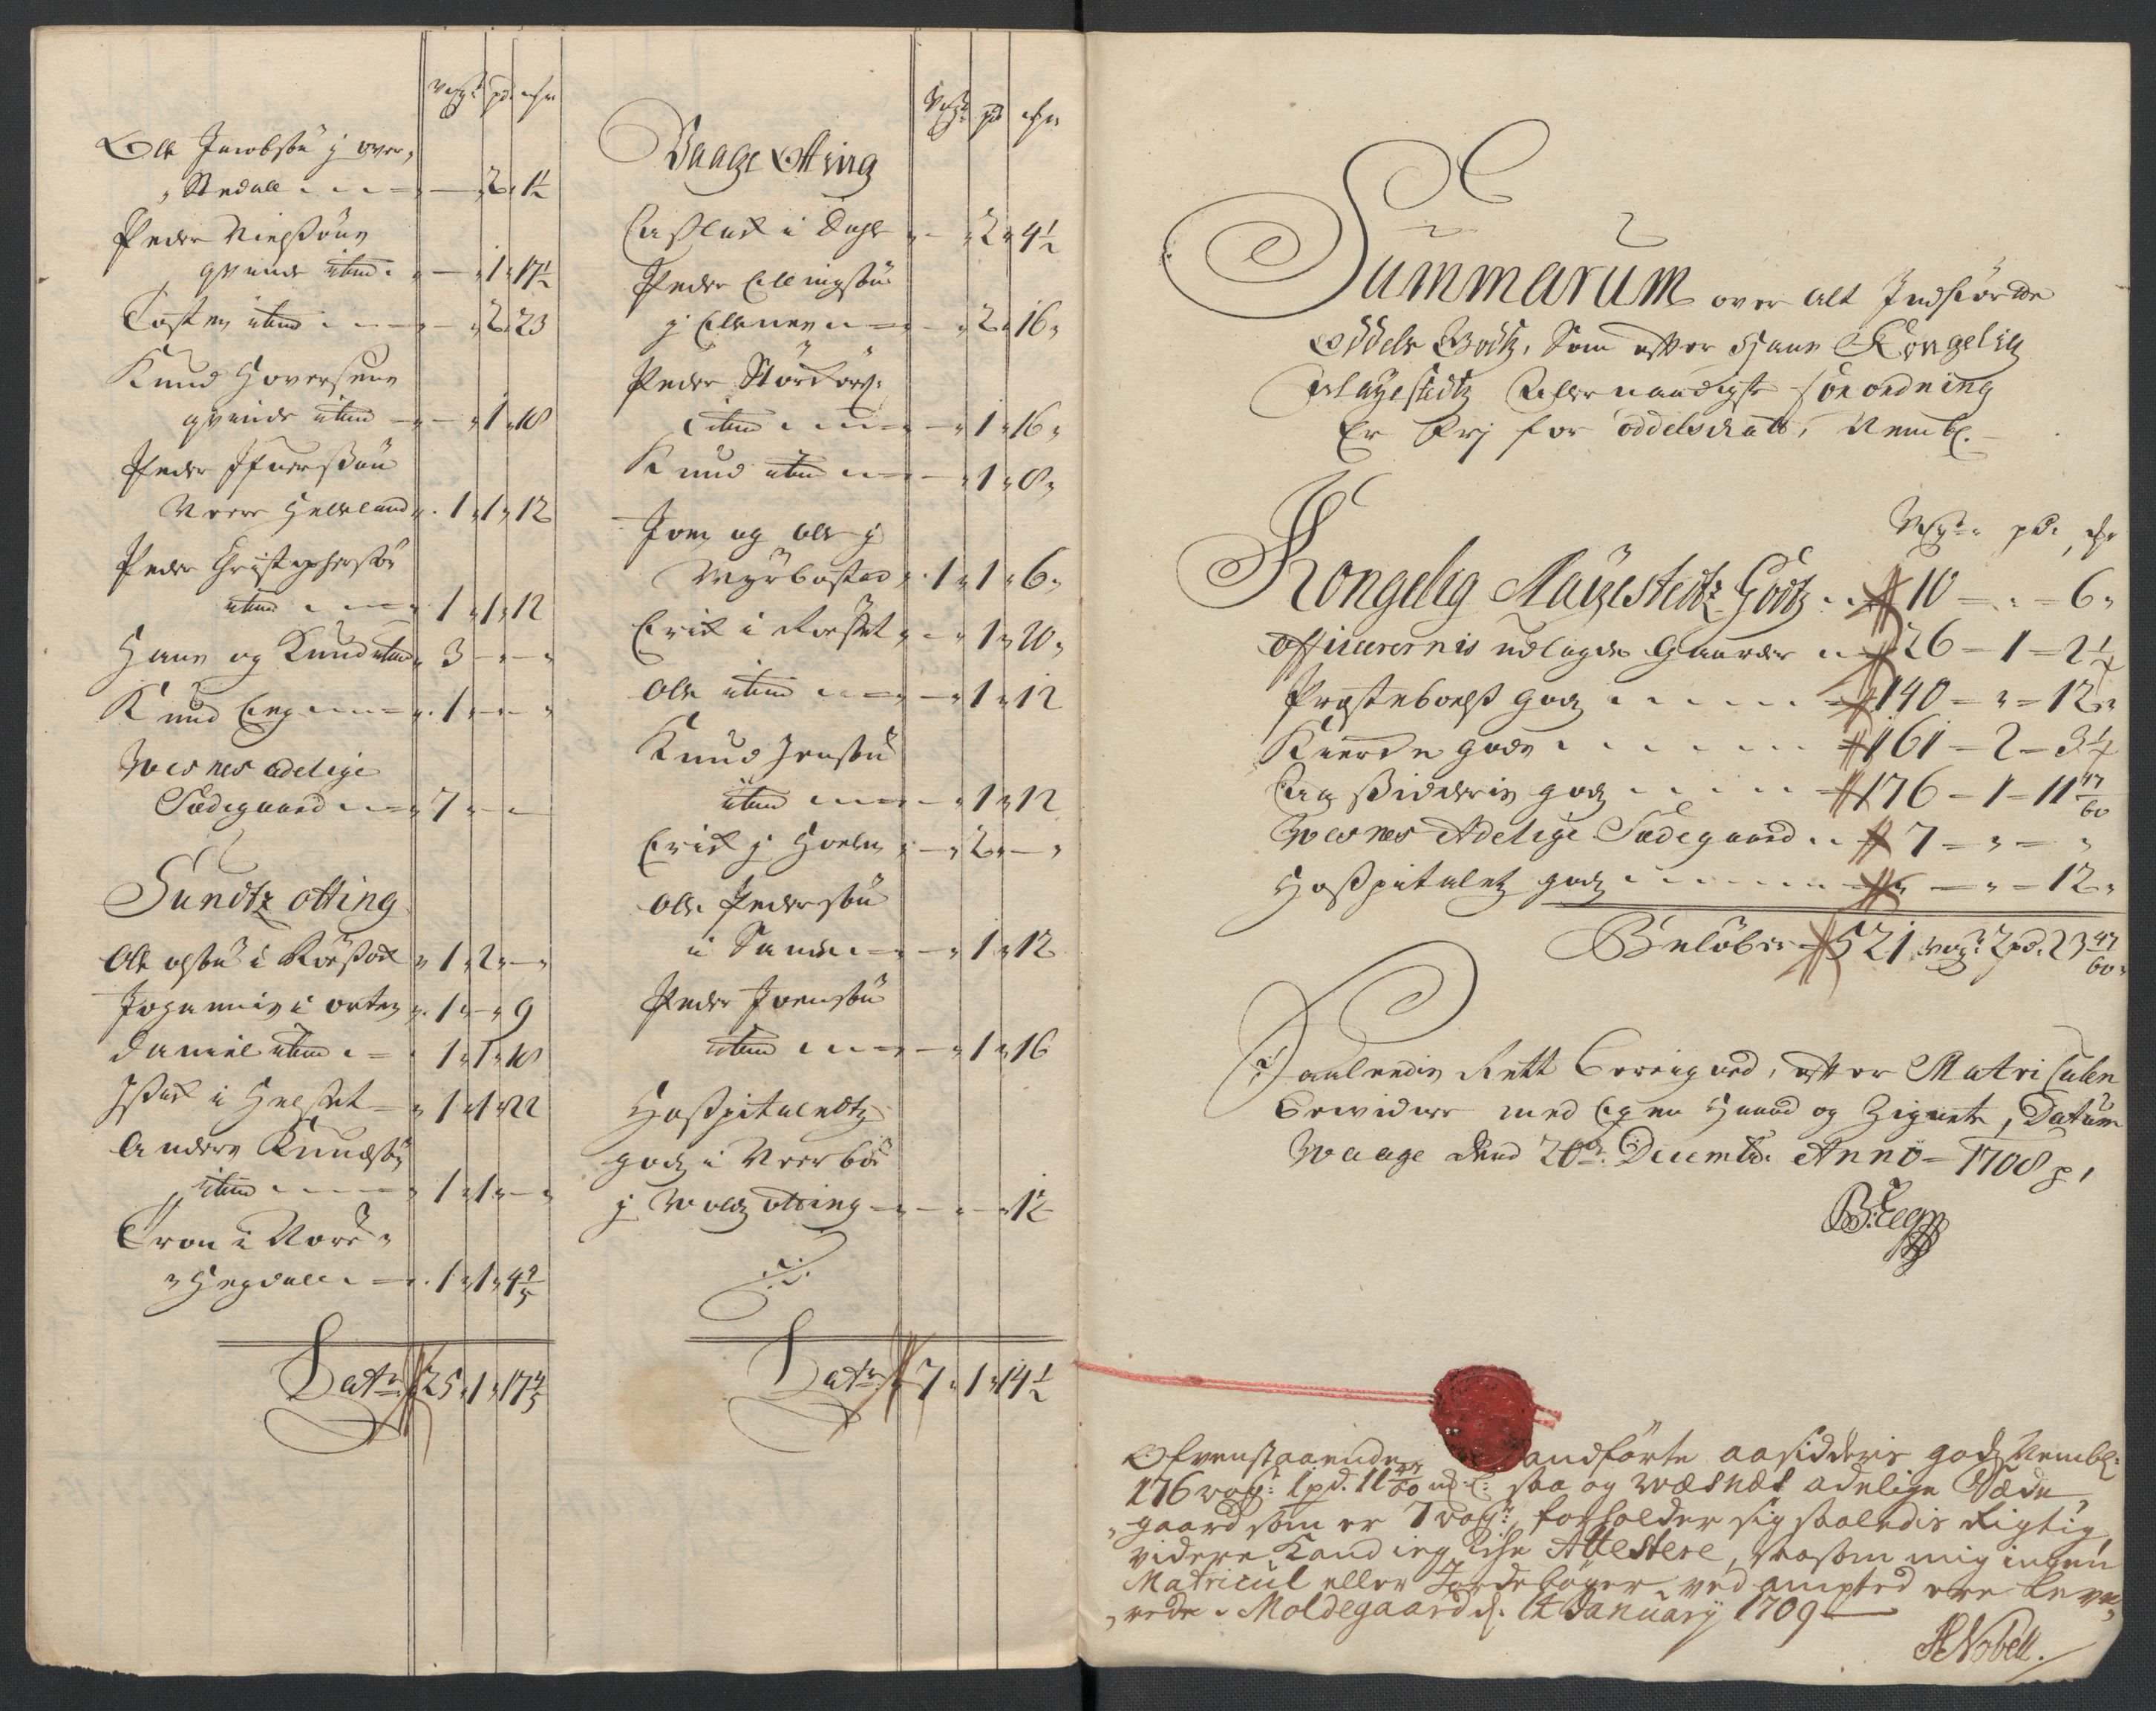 Wog: pd: mk
Ole Jacobsøn j over,
, Stedall - - - 2 " 1½
Peder Nielsøns
qvinde ibm - " 1 " 17½
Tosten ibm - - - " 2 " 23
Knud Hoversens
qvinde ibm - " 1 " 18
Peder Ifuersøn
Nerre Helland " 1 " 1 " 12
Peder Christophersøn
ibm - - - 1 " 1 " 12
Hans og Knud ibm " 3 - " - "
Knud Eeg - - - " 1 " - "
Wesnes adelige
Sædegaard - - - 7 " - -
Sundtz otting
Ole olsøn i Røssok " 1 " 2 " - "
Johannis i orten " 1 " - " 9
Daniel ibm - - 1 " 1 " 18
Isak i Helset - " 1 " 1 " 22
Anders Knudsøn
ibm - - - - " 1 " 1 " - "
Tron i Nord "
" Hegdall - - " 1 " 1 " 4 4/5
Lat: 25 " 1 " 17 4/5
Wog: pd mk
Waage Otting
Aslak i Dahle " - " 2 " 4½
Peder Ellingsøn
j Ellenes - - " 2 " 16 "
Peder Stórkórs:
ibm - - - - " 1 " 16 "
Knud ibm - - - " 1 " 8 "
Joen og ole j
Myrbostad " 1 " 1 " 6 "
Erik i Rosset " - " 1 " 20 "
Ole ibm - - - " 1 " 12
Knud Jensøn
ibm - - - - " 1 " 12
Erik j Holen " - " 2 " - "
Ole Pedersøn
i Sande - - - " 1 " 12
Peder Joensøn
ibm - - - - " 1 " 16
Hospitaletz
godz i Neerbøe
j Wolds otting - - - " 12
Lat: 7 " 1 " 14½
Summarum over alt Indførde
Oddels Godtz, Som efter Hans Kongelig
Mayestætz Allernaadigste forordning
Er frj for oddelskatt, Nembl.
Wog: pd: mk
Kongelig Mayestedtz Godtz - 10 - " - 6 "
Officerernis udlagde Gaarder - 26 - 1 - 2¼
Præstebolss godz - - - - 140 - " - 12 "
Kierche godz - - - - - 161 - 2 - 3¼
Aasiddernis godz - - - - 176 - 1 - 11 47/60
Wesnes Adelige Sædegaard - 7 - " - "
Hospitaletz godz - - - - " - " - 12 "
Beløber 521 wog: 2 pd: 23 47/60
Saaledis Rett Beregned, efter Matriculen
Bevidner med Egen Haand og Zignete, Datum
Waage dend 20de Decembr: Anno 1708 p,
B: Eeg
Ofvenstaaende andførte aasidderis godz Nembl:
176 wog: 1 pd. 11 47/60 saa og Wæsnæs adelige Sæde
" gaard som er 7 wog: forholder sig saaledis Rigtig,
videre Kand ieg iche Attestere, saasom mig ingen
Matricul eller Jordebøger ved ampted ere leve
" rede. Moldegaard d. 14 January 1709
H Nobell.